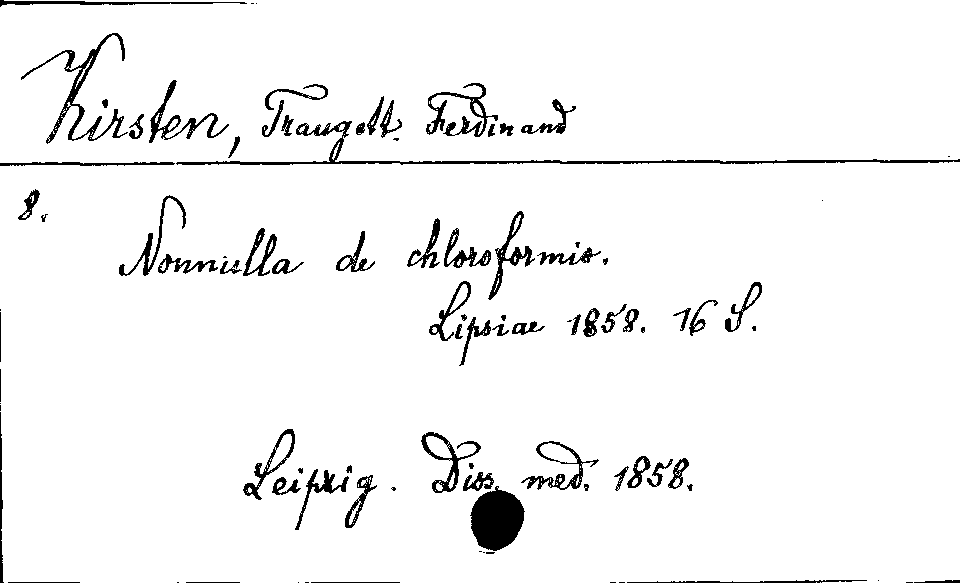 Kirsten, Traugott Ferdinand
8.
Nonnulla de chloroformio.
Lipsiae 1858. 16 S.
Leipzig. Diss. med. 1858.